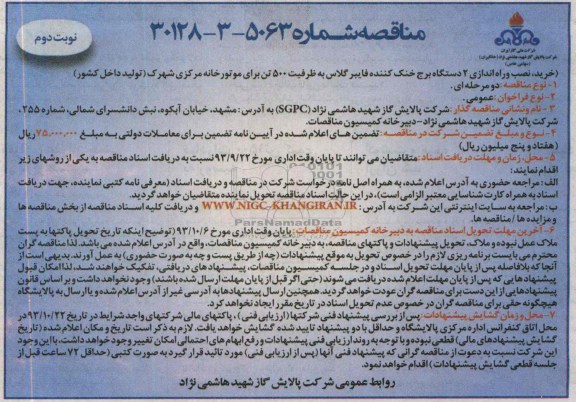 مناقصه شماره ۵۰۶۳-۳-۳۰۱۲۸
نوبت دوم
شرکت ملی گاز ایران
شرکت پالایش گاز شهید هاشمی نژاد (خانگیران)
(سهامی خاص)
(خرید، نصب و راه اندازی ۲ دستگاه برج خنک کننده فایبر گلاس به ظرفیت ۵۰۰ تن برای موتورخانه مرکزی شهرک (تولید داخل کشور)
۱- نوع مناقصه: دو مرحله ای.
۲- نوع فراخوان: عمومی.
۳- نام و نشانی مناقصه گذار: شرکت پالایش گاز شهید هاشمی نژاد (SGPC) به آدرس: مشهد، خیابان آبکوه، نبش دانشسرای شمالی، شماره ۲۵۵.
شرکت پالایش گاز شهید هاشمی نژاد- دبیرخانه کمیسیون مناقصات.
۴- نوع و مبلغ تضمین شرکت در مناقصه: تضمین های اعلام شده در آیین نامه تضمین برای معاملات دولتی به مبلغ ۷۵,۰۰۰,۰۰۰ ریال
(هفتاد و پنج میلیون ریال)
۵- محل، زمان و مهلت دریافت اسناد: متقاضیان می توانند تا پایان وقت اداری مورخ ۹۳/۹/۲۲ نسبت به دریافت اسناد مناقصه به یکی از روشهای زیر
اقدام نمایند:
الف: مراجعه حضوری به آدرس اعلام شده، به همراه اصل نامه درخواست شرکت در مناقصه و دریافت اسناد (معرفی نامه کتبی نماینده، جهت دریافت
اسناد به همراه کارت شناسایی معتبر الزامی است)، در این حالت اسناد مناقصه تحویل نماینده متقاضیان خواهد گردید.
ب: مراجعه به سایت اینترنتی این شرکت به آدرس: WWW.NIGC-KHANGIRAN.IR و دریافت کلیه اسناد مناقصه از بخش مناقصه ها
و مزایده ها / مناقصه ها.
ParsNamadData
۶- آخرین مهلت تحویل اسناد مناقصه به دبیرخانه کمیسیون مناقصات: پایان وقت اداری مورخ ۹۳/۱۰/۶ (توضیح اینکه تاریخ تحویل پاکتها به پست
ملاک عمل نبوده و ملاک، تحویل پیشنهادات و پاکتهای مناقصه، به دبیرخانه کمیسیون مناقصات، واقع در آدرس اعلام شده می باشد. لذا مناقصه گران
محترم می بایست برنامه ریزی لازم را در خصوص تحویل به موقع پیشنهادات (چه از طریق پست و چه به صورت حضوری) به عمل آورند. بدیهی است از
آنجا که بلافاصله پس از پایان مهلت تحویل اسناد و در جلسه کمیسیون مناقصات، پیشنهاد های دریافتی، تفکیک خواهند شد، لذا امکان قبول
پیشنهادهایی که پس از پایان مهلت اعلام شده دریافت می شوند (حتی اگر قبل از پایان مهلت ارسال شده باشند) وجود نخواهد داشت و بر اساس قانون
پیشنهادهایی از این دست برای مناقصه گران عودت خواهد گردید. همچنین ارسال پیشنهادها به آدرسی غیر از آدرس اعلام شده و یا ارسال به پالایشگاه
هیچگونه حقی برای مناقصه گران در خصوص عدم تحویل اسناد در تاریخ مقرر ایجاد نخواهد کرد.
۷- محل و زمان گشایش پیشنهادات: پس از بررسی پیشنهاد فنی شرکتها (ارزیابی فنی)، پاکتهای مالی شرکتهای واجد شرایط در تاریخ ۹۳/۱۰/۲۲ در
محل اتاق کنفرانس اداره مرکزی پالایشگاه و حداقل با دو پیشنهاد تایید شده گشایش خواهد یافت. لازم به ذکر است تاریخ و مکان اعلام شده (تاریخ
گشایش پیشنهادهای مالی) قطعی نبوده و با توجه به روند ارزیابی فنی پیشنهادات و رفع ابهام های احتمالی امکان تغییر وجود خواهد داشت، با این وجود
این شرکت نسبت به دعوت از مناقصه گرانی که پیشنهاد فنی آنها (پس از ارزیابی فنی) مورد تائید قرار گیرد به صورت کتبی (حداقل ۷۲ ساعت قبل از
جلسه قطعی گشایش پیشنهادات) اقدام خواهد نمود.
روابط عمومی شرکت پالایش گاز شهید هاشمی نژاد